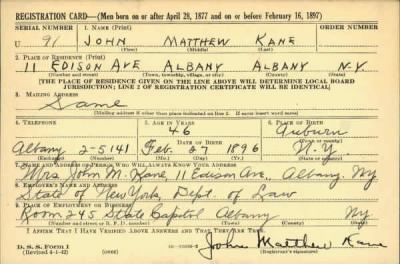 REGISTRATION CARD—(Men born on or after April 28, 1877 and on or before February 16, 1897)
SERIAL NUMBER 1. NAME (Print) ORDER NUMBER
U 91 JOHN MATTHEW KANE
(First) (Middle) (Last)
2. PLACE OF RESIDENCE (Print)
11 EDISON AVE ALBANY ALBANY N.Y.
(Number and street) (Town, township, village, or city) (County) (State)
[THE PLACE OF RESIDENCE GIVEN ON THE LINE ABOVE WILL DETERMINE LOCAL BOARD
JURISDICTION; LINE 2 OF REGISTRATION CERTIFICATE WILL BE IDENTICAL]
3. MAILING ADDRESS
Same
[Mailing address if other than place indicated on line 2. If same insert word same]
4. TELEPHONE 5. AGE IN YEARS 6. PLACE OF BIRTH
46 Auburn
DATE OF BIRTH (Town or county)
Albany 2-5141 Feb 27 1896 N.Y.
(Exchange) (Number) (Mo.) (Day) (Yr.) (State or country)
7. NAME AND ADDRESS OF PERSON WHO WILL ALWAYS KNOW YOUR ADDRESS
Mrs John M. Kane, 11 Edison Ave., Albany. Ny
8. EMPLOYER'S NAME AND ADDRESS
State of New York, Dept. of Law
9. PLACE OF EMPLOYMENT OR BUSINESS
Room 245 State Capitol Albany Ny
(Number and street or R. F. D. number) (Town) (County) (State)
I AFFIRM THAT I HAVE VERIFIED ABOVE ANSWERS AND THAT THEY ARE TRUE.
D. S. S. Form 1
(Revised 4-1-42) (over) John Matthew Kane
(Registrant's signature)